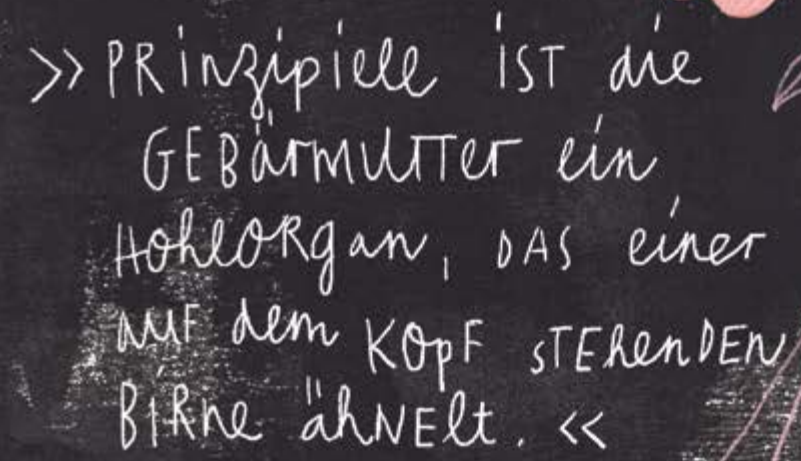 >> PRinzipiell IST die
GEBärMUTTer ein
HohlORgan, DAS einer
AUF dem KOpF STEhenDEN
BIRne ähNElt. <<